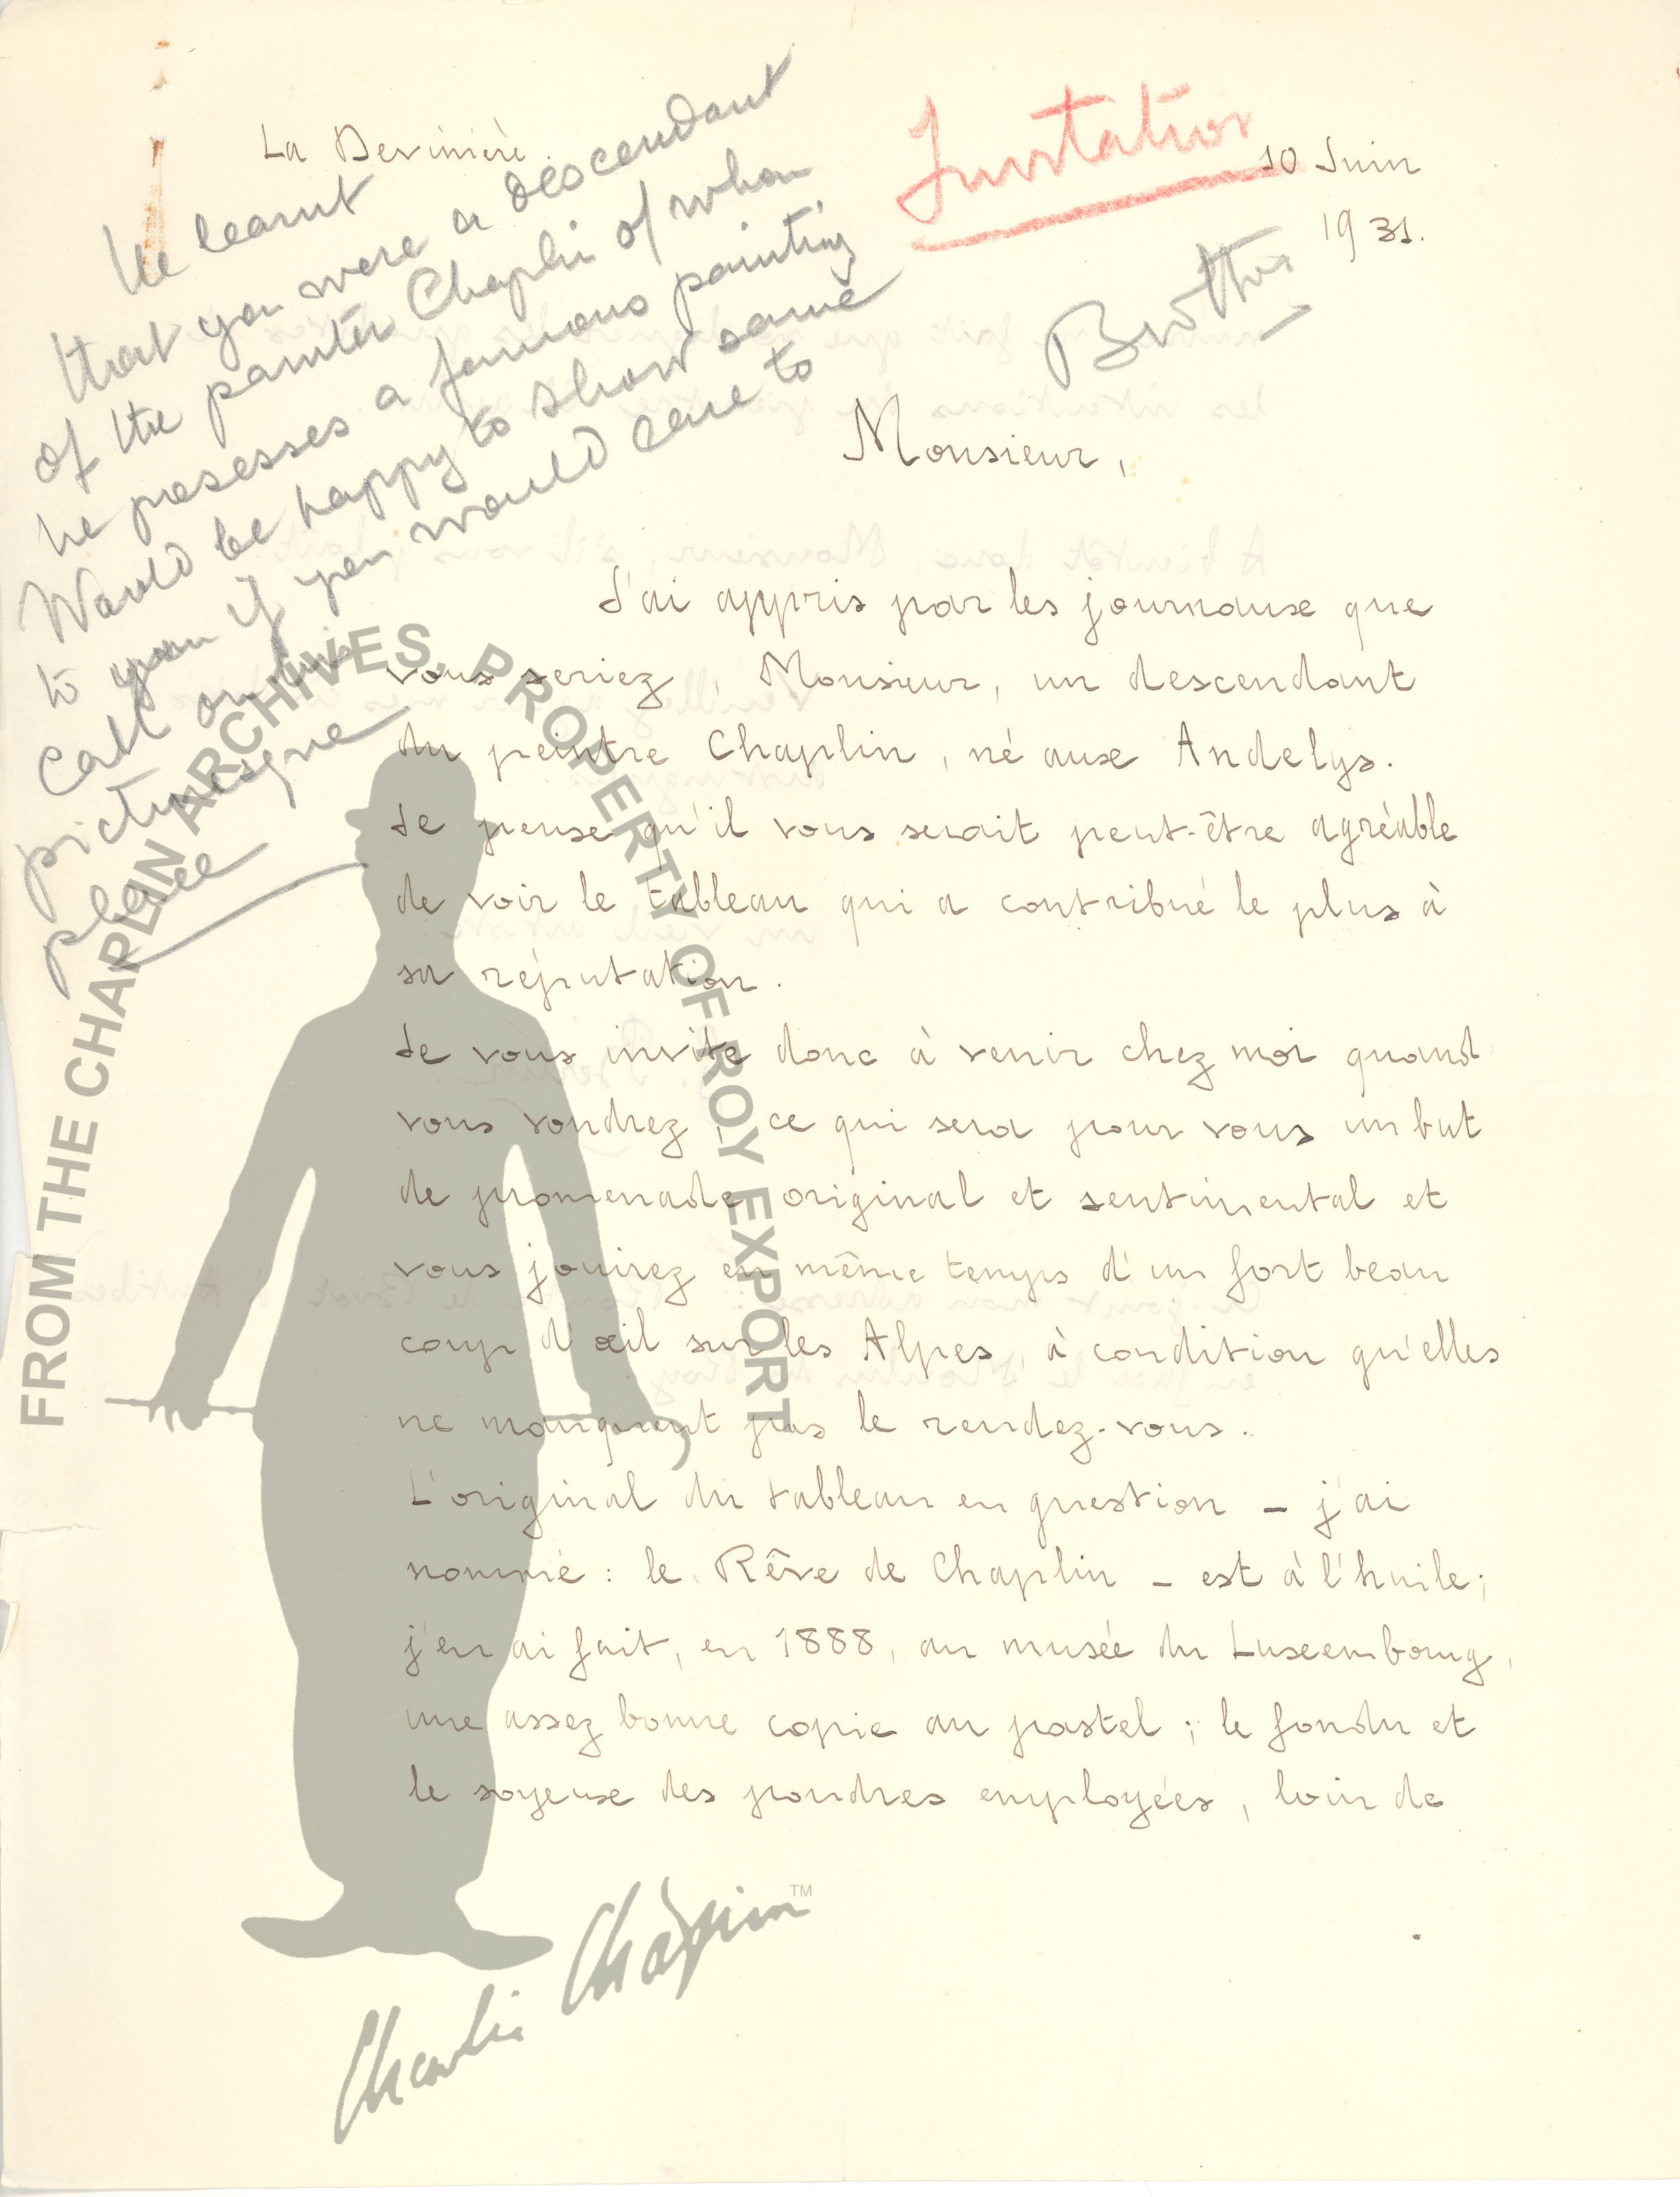 La Devinière.
10 Juin
1931.
Invitation
He learnt
that you were a descendant
of the painter Chaplin of whom
he posesses a famous painting
Would be happy to show same
to you if you would care to
call on his
picturesque
place
Monsieur,
J'ai appris par les journaux que
vous seriez, Monsieur, un descendant
du peintre Chaplin, né aux Andelys.
Je pense qu'il vous serait peut-être agréable
de voir le tableau qui a contribué le plus à
sa réputation.
Je vous invite donc à venir chez moi quand
vous voudrez, ce qui sera pour vous un but
de promenade original et sentimental et
vous jouirez en même temps d'un fort beau
coup d'œil sur les Alpes, à condition qu'elles
ne manquent pas le rendez-vous.
L'original du tableau en question – j'ai
nommé : le Rêve de Chaplin – est à l'huile ;
j'en ai fait, en 1888, au musée du Luxembourg,
une assez bonne copie au pastel ; le fondu et
le soyeux des poudres employées, loin de
FROM THE CHAPLIN ARCHIVES. PROPERTY OF ROY EXPORT
Charlie Chaplin™